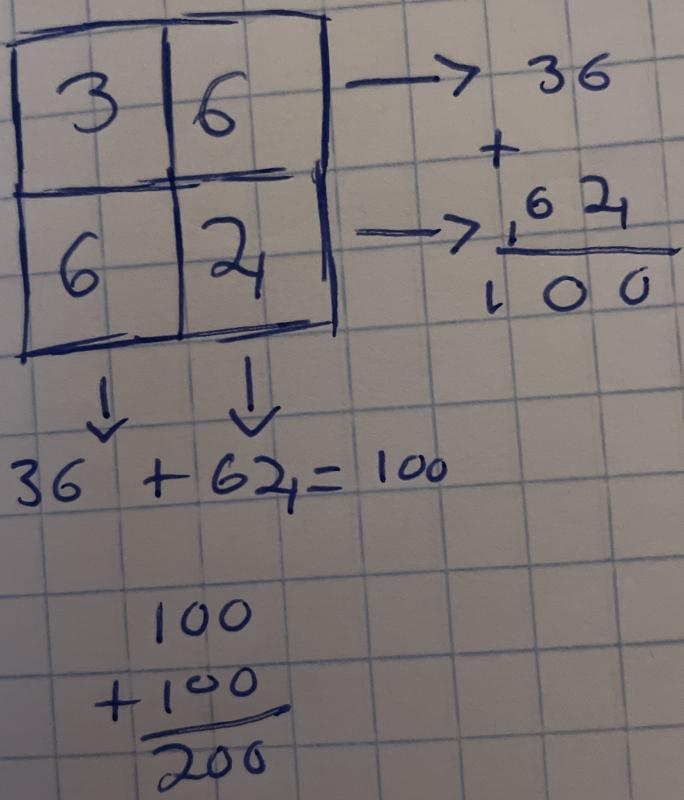 3 6 → 36
+
6 4 → 1 64
100
↓ ↓
36 + 64 = 100
100
+ 100
200